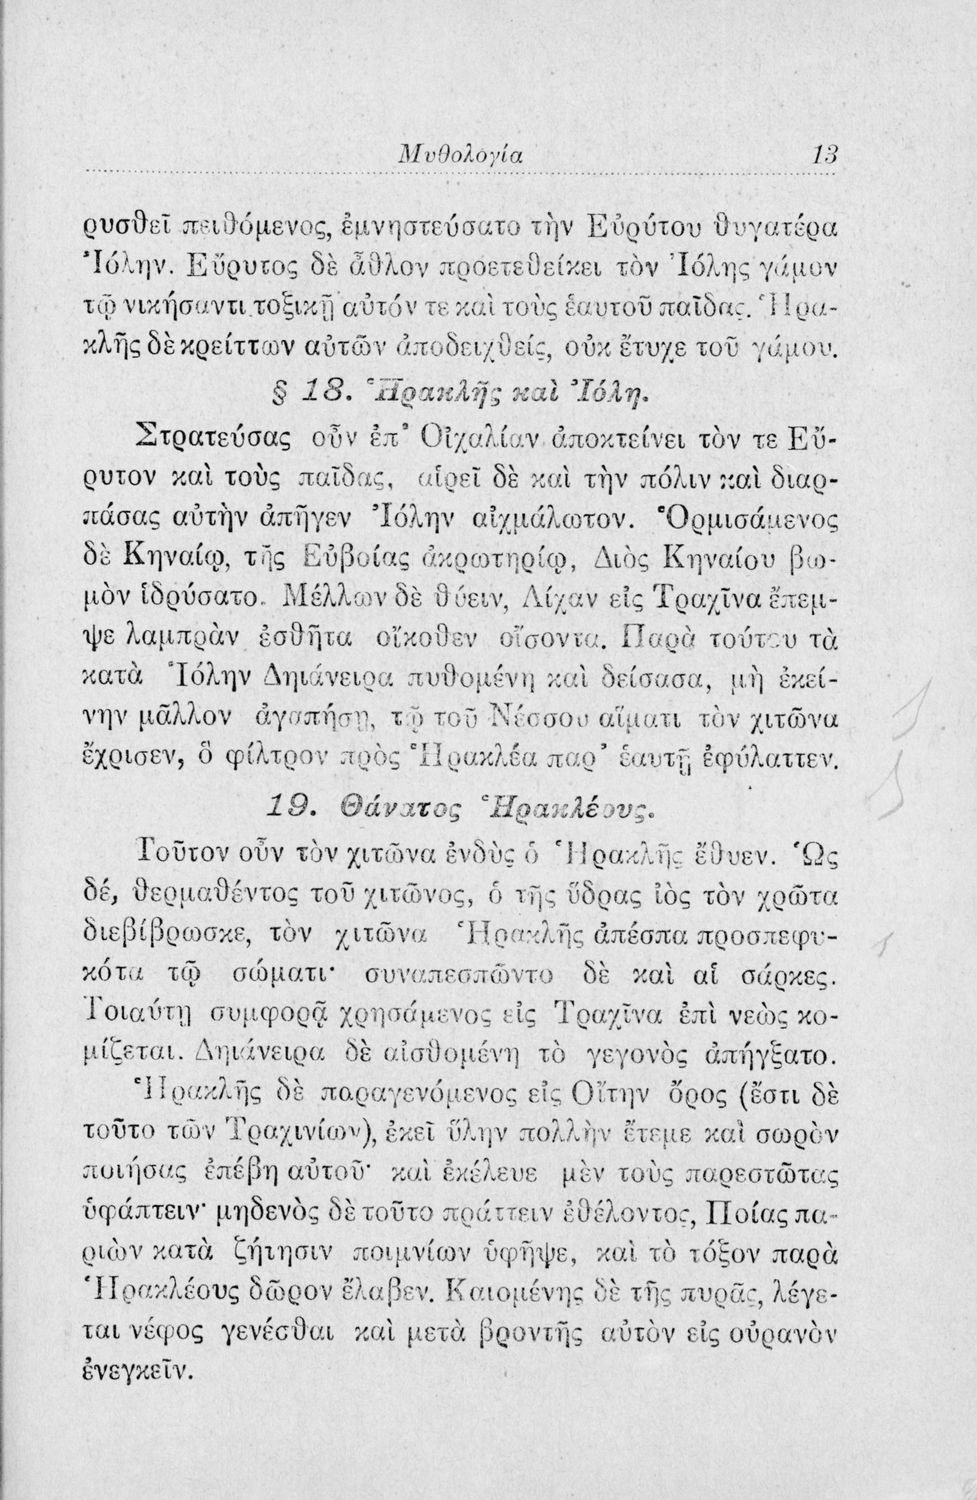 Μυθολογία 13
ρυσθεῖ πειθόμενος, ἐμνηστεύσατο τὴν Εὐρύτου θυγατέρα
Ἰόλην. Εὔρυτος δὲ ἆθλον προετεθείκει τὸν Ἰόλης γάμον
τῷ νικήσαντι τοξικῇ αὐτόν τε καὶ τοὺς ἑαυτοῦ παῖδας. Ἡρα-
κλῆς δὲ κρείττων αὐτῶν ἀποδειχθείς, οὐκ ἔτυχε τοῦ γάμου.
§ 18. Ἡρακλῆς καὶ Ἰόλη.
Στρατεύσας οὖν ἐπ᾿ Οἰχαλίαν ἀποκτείνει τὸν τε Εὔ-
ρυτον καὶ τοὺς παῖδας, αἱρεῖ δὲ καὶ τὴν πόλιν καὶ διαρ-
πάσας αὐτὴν ἀπῆγεν Ἰόλην αἰχμάλωτον. Ὁρμισάμενος
δὲ Κηναίῳ, τῆς Εὐβοίας ἀκρωτηρίῳ, Διὸς Κηναίου βω-
μὸν ἱδρύσατο. Μέλλων δὲ θύειν, Λίχαν εἰς Τραχῖνα ἔπεμ-
ψε λαμπρὰν ἐσθῆτα οἴκοθεν οἴσοντα. Παρὰ τούτου τὰ
κατὰ Ἰόλην Δηιάνειρα πυθομένη καὶ δείσασα, μὴ ἐκεί-
νην μᾶλλον ἀγαπήσῃ, τῷ τοῦ Νέσσου αἵματι τὸν χιτῶνα
ἔχρισεν, ὃ φίλτρον πρὸς Ἡρακλέα παρ᾿ ἑαυτῇ ἐφύλαττεν.
19. Θάνατος Ἡρακλέους.
Τοῦτον οὖν τὸν χιτῶνα ἐνδὺς ὁ Ἡρακλῆς ἔθυεν. Ὡς
δέ, θερμαθέντος τοῦ χιτῶνος, ὁ τῆς ὕδρας ἰὸς τὸν χρῶτα
διεβίβρωσκε, τὸν χιτῶνα Ἡρακλῆς ἀπέσπα προσπεφυ-
κότα τῷ σώματι· συναπεσπῶντο δὲ καὶ αἱ σάρκες.
Τοιαύτῃ συμφορᾷ χρησάμενος εἰς Τραχῖνα ἐπὶ νεὼς κο-
μίζεται. Δηιάνειρα δὲ αἰσθομένη τὸ γεγονὸς ἀπήγξατο.
Ἡρακλῆς δὲ παραγενόμενος εἰς Οἴτην ὄρος (ἔστι δὲ
τοῦτο τῶν Τραχινίων), ἐκεῖ ὕλην πολλὴν ἔτεμε καὶ σωρὸν
ποιήσας ἐπέβη αὐτοῦ· καὶ ἐκέλευε μὲν τοὺς παρεστῶτας
ὑφάπτειν· μηδενὸς δὲ τοῦτο πράττειν ἐθέλοντος, Ποίας πα-
ριὼν κατὰ ζήτησιν ποιμνίων ὑφῆψε, καὶ τὸ τόξον παρὰ
Ἡρακλέους δῶρον ἔλαβεν. Καιομένης δὲ τῆς πυρᾶς, λέγε-
ται νέφος γενέσθαι καὶ μετὰ βροντῆς αὐτὸν εἰς οὐρανὸν
ἐνεγκεῖν.